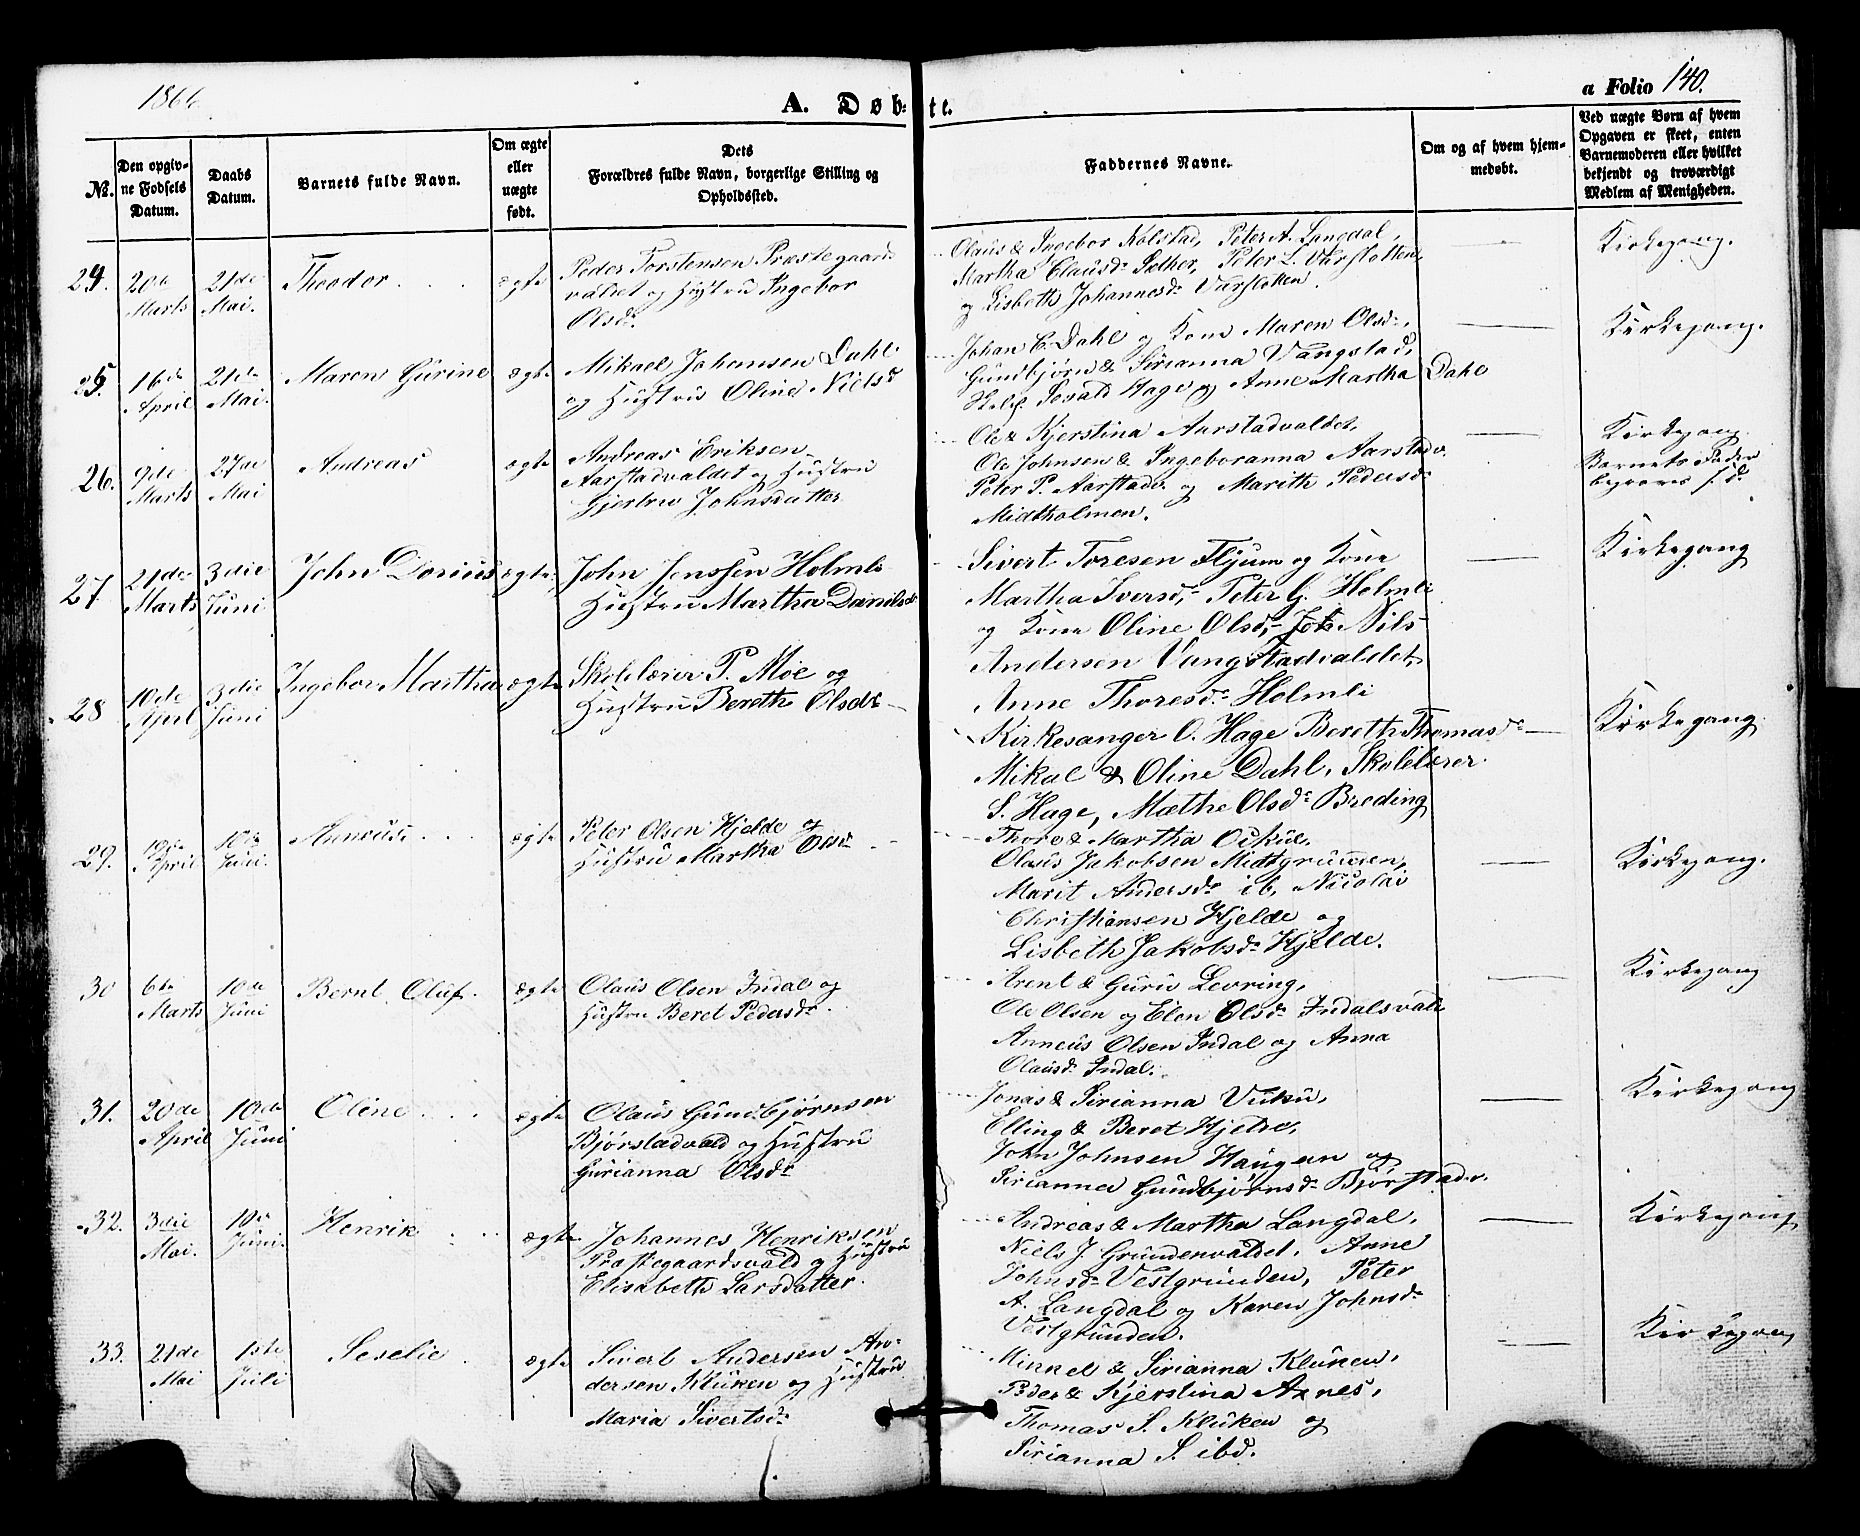 1866
A. Døbte.
a Folio 140.
No.
Den opgivne Fødsels Datum.
Daabs Datum.
Barnets fulde Navn.
Om ægte eller uægte født.
Dets Forældres fulde Navn, borgerlige Stilling og Opholdssted.
Faddernes Navne.
Om og af hvem hjemmedøbt.
Ved uægte Børn af hvem Opgaven er skeet, enten Barnemoderen eller hvilket bekjendt og troværdigt Medlem af Menigheden.
24. 20de Marts 21de Mai. Theodor ægte
Peder Torstensen Præstegaards
valdet og Hustru Ingebor
Olsdr.
Olaus & Ingebor Kolstad, Peter A. Langdal,
Martha Clausdr Sæther, Peter L. Varslotten
og Lisbeth Johannesdr Varslotten.
Kirkegang.
25. 16de April 21de Mai. Maren Gurine ægte
Mikael Johansen Dahl
og Hustru Oline Nielsdr
Johan C. Dahl og Kone Maren Olsdr,
Gundbjørn & Sirianna Vangstad,
Hage og Anne Martha Dahl
Kirkegang.
26. 9de Marts 27de Mai Andreas ægte
Andreas Eriksen
Aarstadvaldet og Hustru
Gjertru Johnsdatter
Ole & Kjerstina Aarstadvaldet,
Ole Johnsen & Ingeboranna Aarstadv.
Peter P. Aarstadv. og Marith Pedersdr
Midtholmen.
Kirkegang
Barnets Fader
begraves s. d.
27 21de Marts 3die Juni John Dorius ægte
John Jenssen Holmli
Hustru Martha Danielsdr
Sivert Toresen Fljum og Kone
Martha Iversdr, Peter G. Holmli
og Kone Oline Olsdr, Nils
Andersen Vangstadvaldet,
Anne Thoresdr Holmli
Kirkegang
28 10de April 3die Juni Ingebor Martha ægte
Skolelærer P. Moe og
Hustru Bereth Olsdr
Kirkesanger O. Hage Bereth Thomasdr
Mikal & Oline Dahl, Skolelærer
S. Hage, Mæthe Olsdr Breding
Kirkegang
29. 19de April 10de Juni. Anneus ægte
Peter Olsen Hjelde og
Hustru Martha Olsdr
Thore & Martha
Olaus Jakobsen Midtgrunden,
Marit Andersdr ib, Nicolai
Christiansen Hjelde og
Lisbeth Jakobsdr Hjelde.
Kirkegang.
30 6te Marts 10de Juni Bernt Oluf. ægte
Olaus Olsen Indal og
Hustru Beret Pedersdr.
Arent & Guru Levring,
Ole Olsen og Elen Olsdr Indalsvald
Anneus Olsen Indal og Anna
Olausdr Indal.
Kirkegang
31. 20de April 10de Juni Oline ægte
Olaus Gundbjørnsen
Bjørstadvald og Hustru
Gurianna Olsdr
Jonas & Sirianna Vuku,
Elling & Beret Hjelde,
John Johnsen Haugen og
Sirianna Gundbjørnsdr Bjørstadv.
Kirkegang
32. 3die Mai. 10de Juni. Henrik ægte
Johannes Henriksen
Præstegaardsvald og Hustru
Elisabeth Larsdatter.
Andreas & Martha Langdal,
Niels J. Grundenvaldet, Anne
Johnsdr Vestgrunden, Peter
A. Langdal og Karen Johnsdr
Vestgrunden.
Kirkegang
33. 21de Mai 1ste Juli Seselie ægte
Sivert Andersen An-
dersen Kluken og Hustru
Maria Sivertsdr
Mikkel & Sirianna Kluken,
Peder & Kjerstina Axnes,
Thomas S. Kluken og
Sirianna S. ibd.
Kirkegang